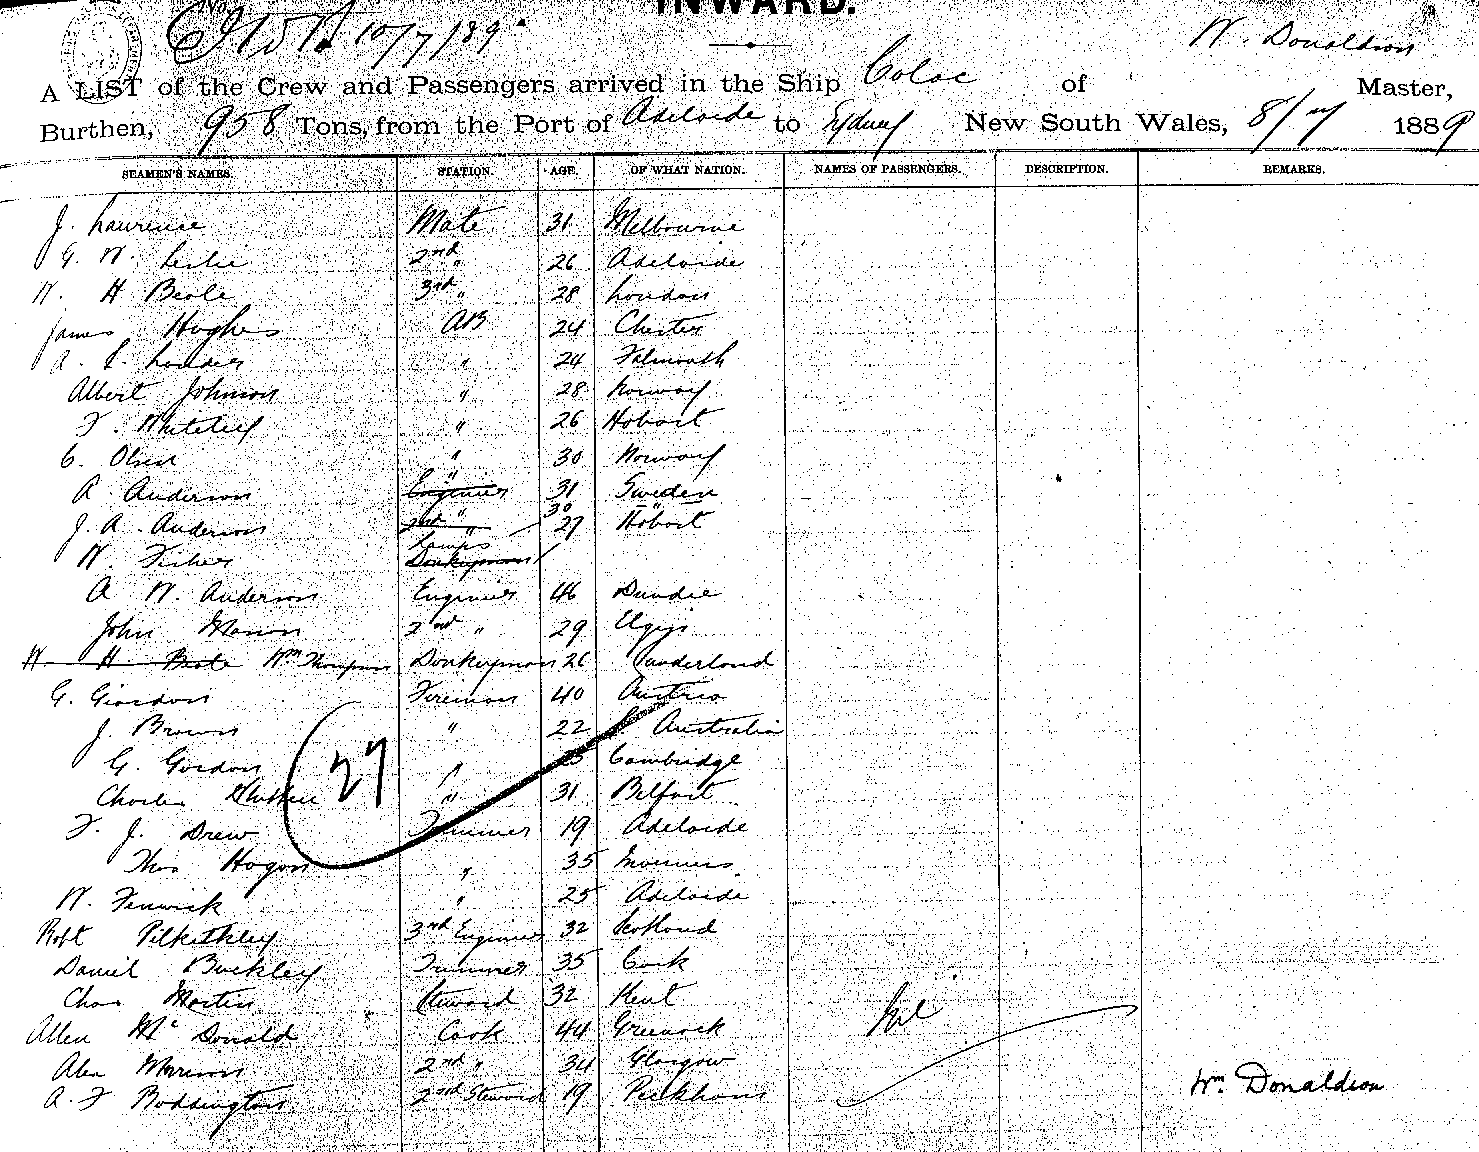 INWARD.
10/7/89
W. Donaldson
A LIST of the Crew and Passengers arrived in the Ship Colac of Master,
Burthen, 958 Tons, from the Port of Adelaide to Sydney New South Wales, 8/7 1889
SEAMEN'S NAMES. STATION. AGE. OF WHAT NATION. NAMES OF PASSENGERS. DESCRIPTION. REMARKS.
J. Laurence Mate 31 Melbourne
G. W. Leslie 2nd " 26 Adelaide
W. H Beale 3rd " 28 London
James Hughes AB 24 Chester
A. L. Lander " 24 Falmouth
Albert Johnson " 28 Norway
F. Whiteley " 26 Hobart
C. Olsen " 30 Norway
A Anderson " Engineer 31 Sweden
J. A. Anderson 2nd " 30 "
W. Fisher Lamps Donkeyman 27 Hobart
A W. Anderson Engineer 46 Dundee
John Mason 2nd " 29 Elgin
W H Beale Wm Thompson Donkeyman 26 Sunderland
G. Giordon Fireman 40 Austria
J. Brown " 22 Australia
G. Gordon " 25 Cambridge
Charles " 31 Belfast
27
F. J. Drew Trimmer 19 Adelaide
Thos Hogan " 35 Inverness
W. Fenwick " 25 Adelaide
Robt Pilkethley 3rd Engineer 32 Scotland
Daniel Buckley Trimmer 35 Cork
Chas Martin Steward 32 Kent
Allen McDonald Cook 44 Greenock Nil
Alex Morrison 2nd " 34 Glasgow
A. F Boddington 2nd Steward 19 Peckham
Wm Donaldson